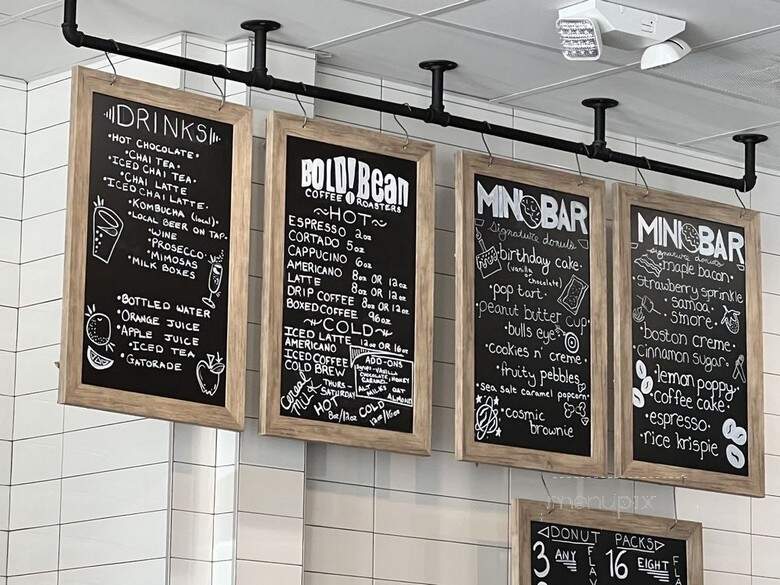 DRINKS
•HOT CHOCOLATE•
•CHAI TEA•
•ICED CHAI TEA•
•CHAI LATTE
•ICED CHAI LATTE•
•KOMBUCHA (local)•
•LOCAL BEER ON TAP•
•WINE
•PROSECCO•
•MIMOSAS
•MILK BOXES
•BOTTLED WATER
•ORANGE JUICE
•APPLE JUICE
•ICED TEA
•GATORADE
BOLD!BEAN
COFFEE ROASTERS
~HOT~
ESPRESSO 2oz
CORTADO 5oz
CAPPUCINO 6oz
AMERICANO 8oz OR 12oz
LATTE 8oz OR 12oz
DRIP COFFEE 8oz OR 12oz
BOXED COFFEE 96oz
~COLD~
ICED LATTE 12oz OR 16oz
AMERICANO
ICED COFFEE
COLD BREW
ADD-ONS
SYRUPS-VANILLA
CHOCOLATE HONEY
CARAMEL
ALT MILKS OAT
ALMOND
Cereal Milk
THURS-
SATURDAY
HOT
8oz/12oz
COLD
12oz/16oz
MINI BAR
Signature donuts
•birthday cake•
(vanilla or chocolate)
•pop tart•
•peanut butter cup•
•bulls eye•
•cookies n' creme•
•fruity pebbles•
•sea salt caramel popcorn•
•cosmic
brownie
MINI BAR
signature donuts
•maple bacon•
•strawberry sprinkle
•samoa
•s'more•
•boston creme•
•cinnamon sugar•
•lemon poppy•
•coffee cake•
•espresso•
•rice krispie•
menupix
◁DONUT PACKS▷
3 ANY FLA
16 EIGHT FL